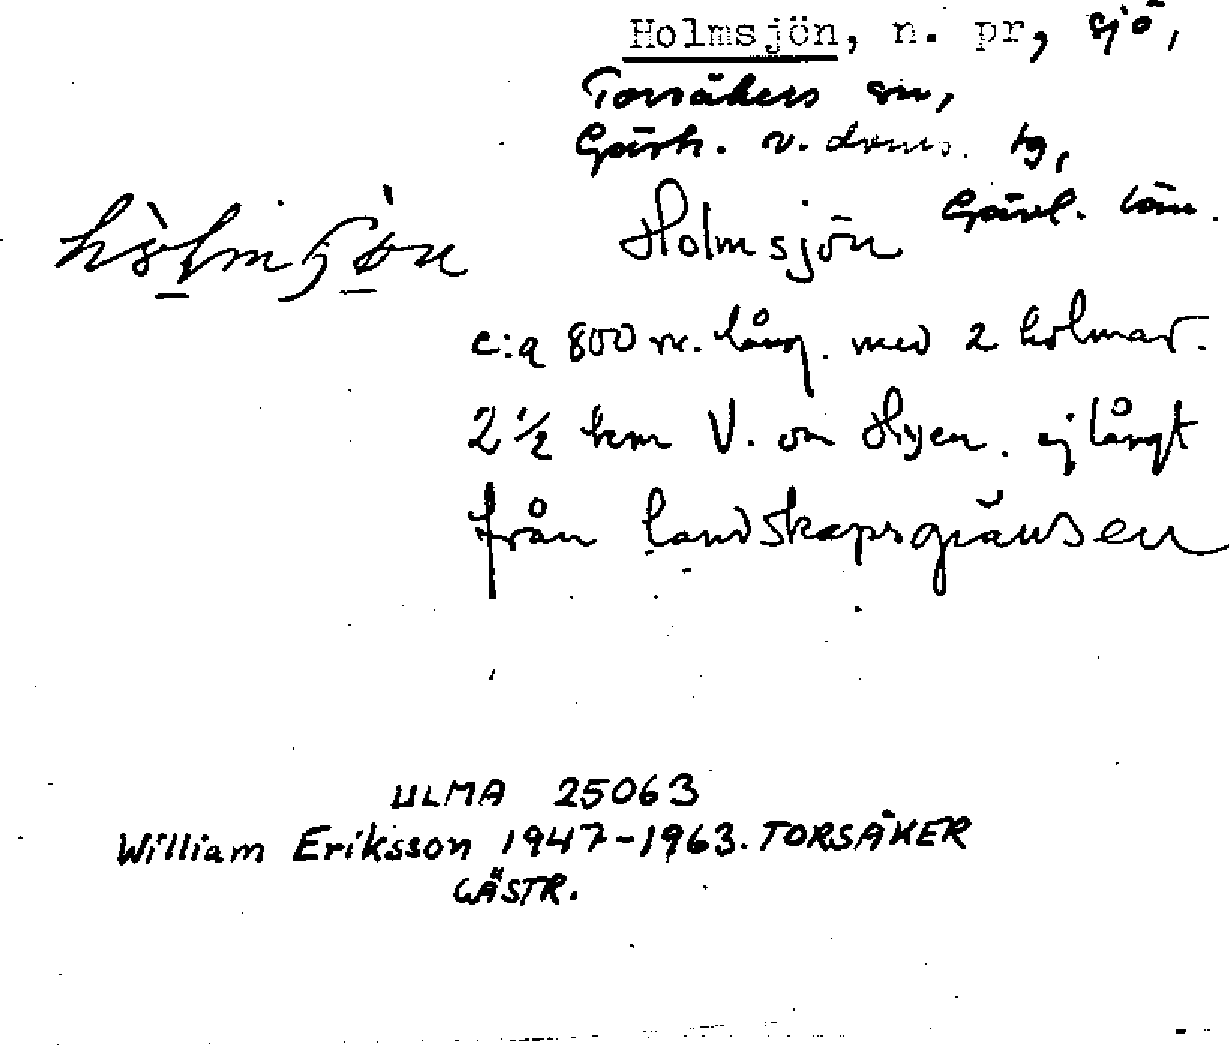 Holmsjön, n. pr, sjö,
Torsåkers sn,
Gästr. v. doms. tg,
Gävl. län.
Holmsjön
c:a 800 m. lång. med 2 holmar.
2 1/2 km V. om Hyen. ej långt
från landskapsgränsen
ULMA 25063
William Eriksson 1947-1963. TORSÅKER
GÄSTR.